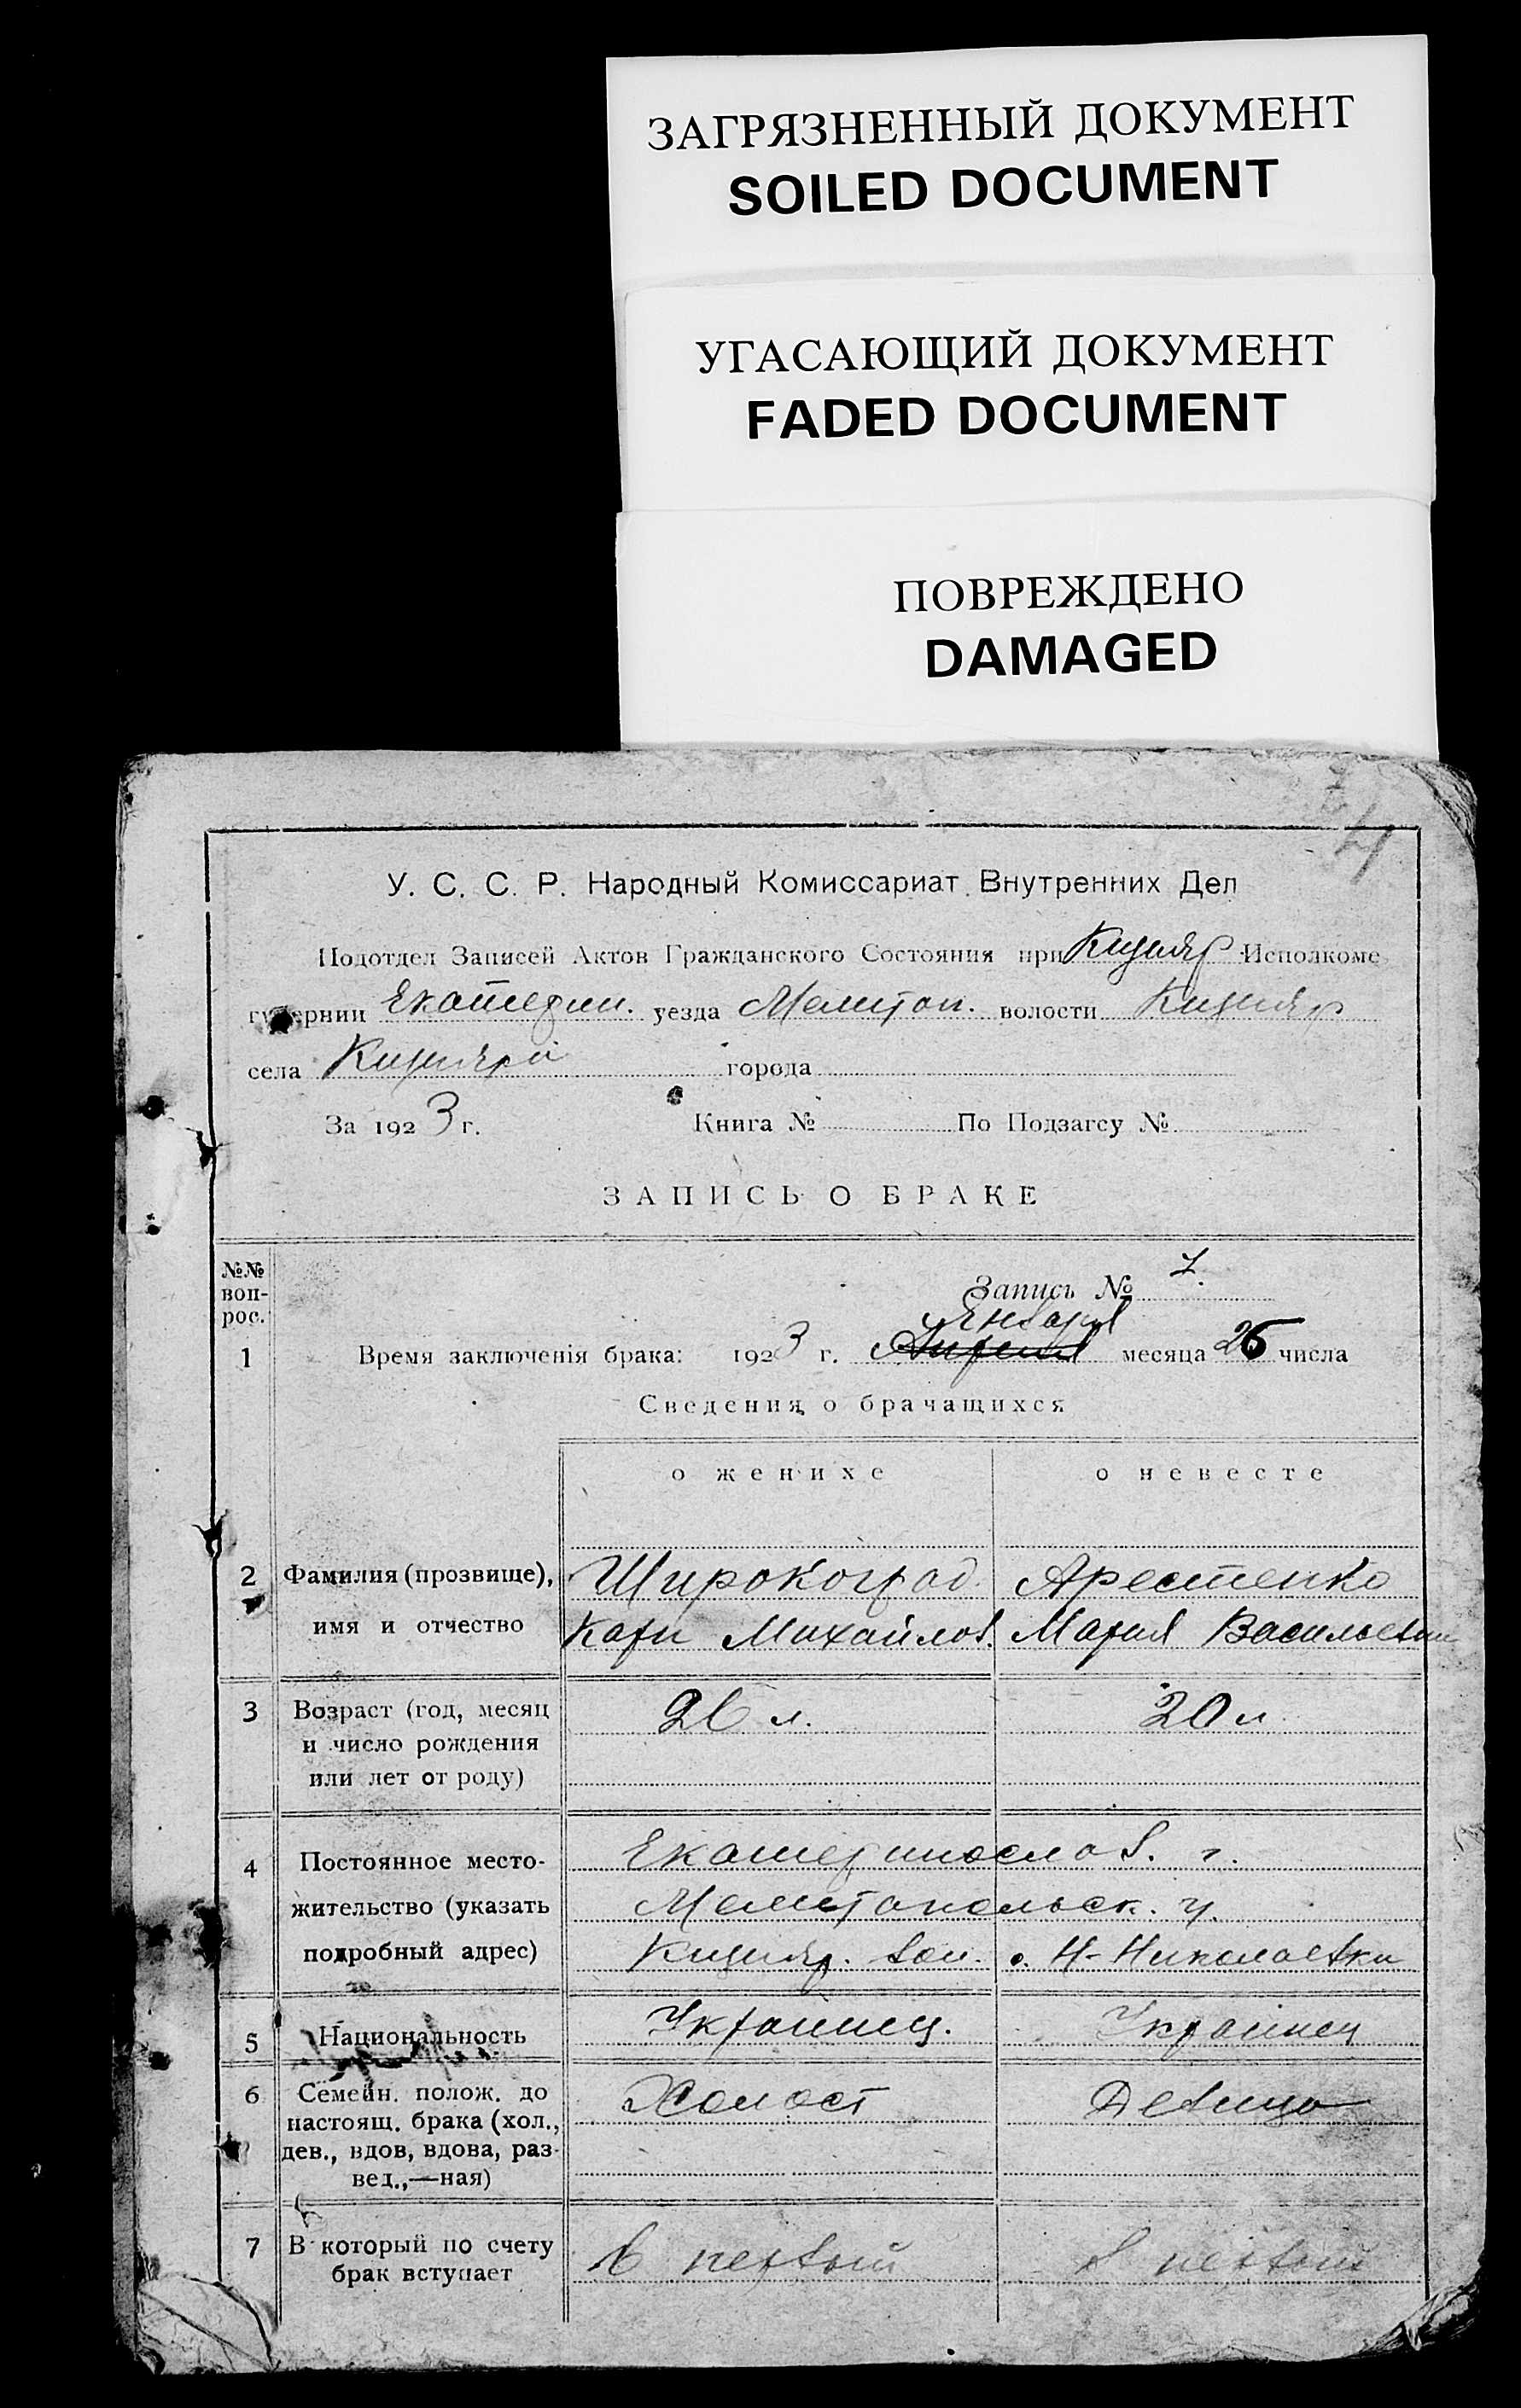 ЗАГРЯЗНЕННЫЙ ДОКУМЕНТ
SOILED DOCUMENT
УГАСАЮЩИЙ ДОКУМЕНТ
FADED DOCUMENT
ПОВРЕЖДЕНО
DAMAGED
4
У. С. С. Р. Народный Комиссариат Внутренних Дел
Подотдел Записей Актов Гражданского Состояния при Кизияр Исполкоме
губернии Екатерин. уезда Мелитоп. волости Кизияр
села Кизияра города
За 1923 г. Книга № По Подзагсу №
ЗАПИСЬ О БРАКЕ
№№ воп-рос.
Запись №
Января
1 Время заключенія брака: 1923 г. Апреля месяца 26 числа
Сведения о брачащихся
о женихе о невесте
2 Фамилия (прозвище), Широкоград. Арестенко
имя и отчество Карп Михайлов. Мария Васильевна
3 Возраст (год, месяц 26 л. 20 л
и число рождения
или лет от роду)
4 Постоянное место- Екатеринослав. г.
жительство (указать Мелитопольск. у.
подробный адрес) Кизияр. вол. с. Н-Николаевки
5 Национальность Украинец. Украинец
6 Семейн. полож. до Холост Девица
настоящ. брака (хол.,
дев., вдов, вдова, раз-
вед.,—ная)
7 В который по счету в первый в первый
брак вступает